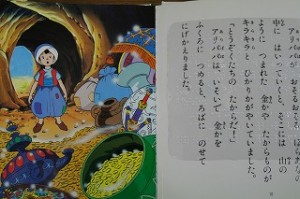 アリババが おそるおそる ほらあなの
中に はいっていくと、そこには 山の
ように つまれた 金かや たからものが
キラキラと ひかりかがやいていました。
「とうぞくたちの たからだ!」
アリババは、いそいで 金かを
ふくろに つめると、ろばに のせて
にげかえりました。